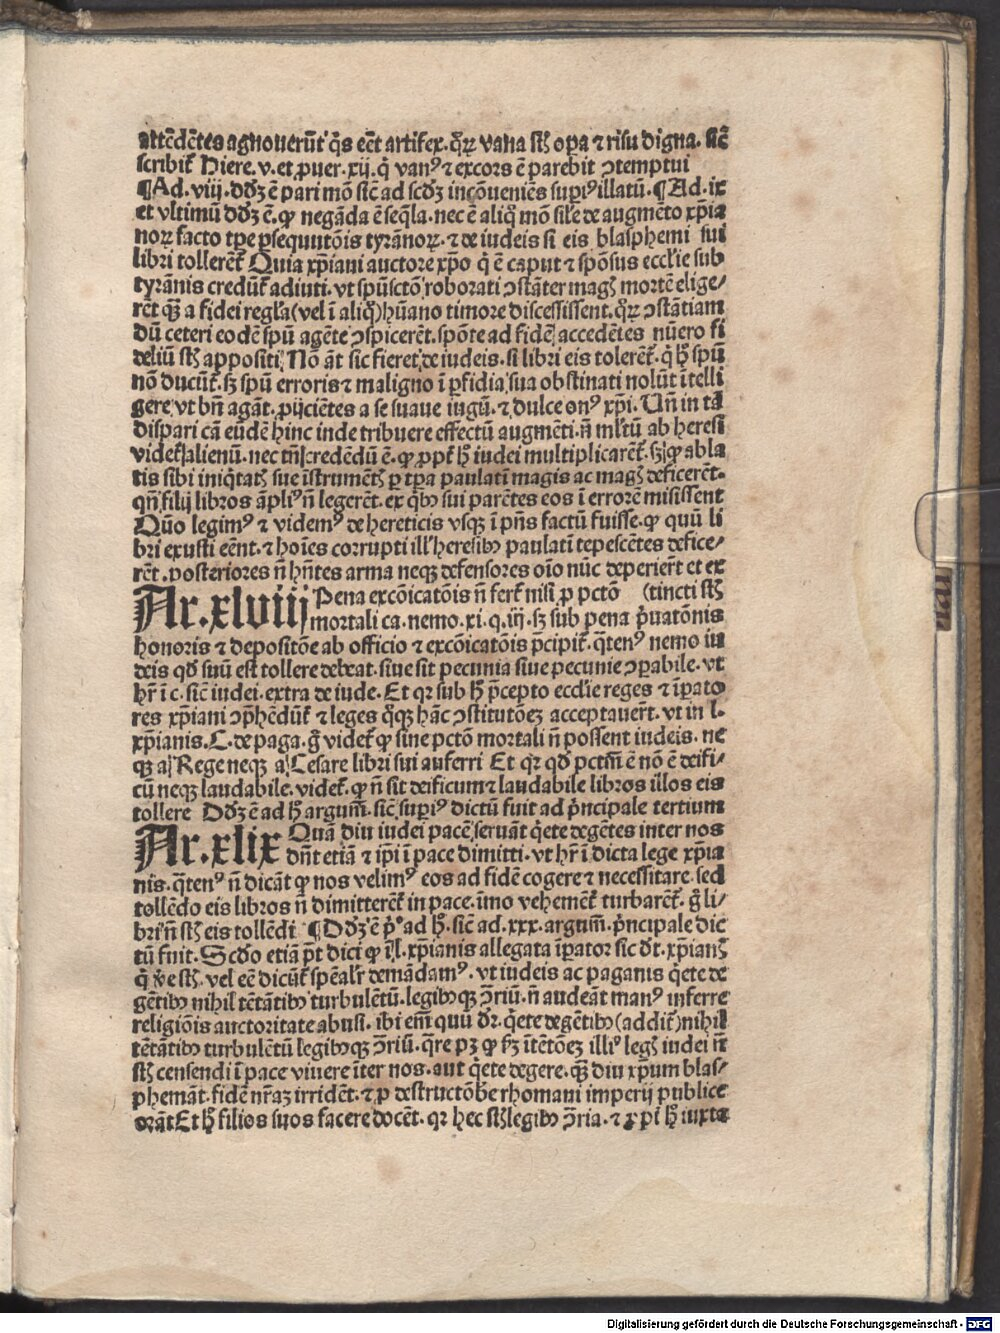 attēdētes agnouerūt q̇s eēt artifex. q̄ꝝ vana sꝉ oꝑa ⁊ risu digna. sic̄
scribit̃ Hiere. v. et ꝓuer. xij. q̇ vanꝰ ⁊ excors ē parebit ↄtemptui
¶Ad. viij. dōꝫ ē pari mō sic̄ ad scd̄ꝫ incōueniēs supiꝰ illatū. ¶Ad. ix
et vltimū dōꝫ ē. ꝙ negāda ē seq̄la. nec ē aliq̊ mō sile de augmēto xp̄ia
noꝝ facto tꝑe ꝑsequutōis tyrānoꝝ. ⁊ de iudeis si eis blasphemi sui
libri tollerēt̃ Quia xp̄iani auctore xp̄o q̇ ē caput ⁊ spōsus eccl̄ie sub
tyrānis credūt̃ adiuti. vt spūsctō roborati ↄstāter magꝭ mortē elige⸗
rēt q̄ꝫ a fidei regl̓a (vel ī aliq̊) hūano timore discessissent. q̄ꝝ ↄstātiam
dū ceteri eodē spū agēte ↄspicerēt. spōte ad fidē accedētes nūero fi
deliū sꝉ appositi Nō āt sic fieret de iudeis. si libri eis tolerēt̃. q̇ ꝧ spū
nō ducūt̃. sꝫ spū erroris ⁊ maligno ī ꝑfidia sua obstinati nolūt ītelli
gere vt bn̄ agāt. ꝓijciētes a se suaue iugū. ⁊ dulce onꝰ xp̄i. Un̄ in tā
dispari cā eūdē hinc inde tribuere effectū augmēti. n̄ ml̓tū ab heresi
videt̃ alienū. nec tn̄ credēdū ē. ꝙ ꝓpt̃ ꝧ iudei multiplicarēt̃. sꝫ ꝙ abla
tis sibi iniq̇tatꝭ sue īstrumētꝭ ꝑ tꝑa paulatī magis ac magꝭ deficerēt.
qn̄ filij libros āpliꝰ n̄ legerēt. ex q̇bꝰ sui parētes eos ī errorē misissent
Quō legimꝰ ⁊ videmꝰ de hereticis vsqꝫ ī pn̄s factū fuisse. ꝙ quū li
bri exusti eēnt. ⁊ hoīes corrupti ill̓ heresibꝰ paulatī tepescētes defice⸗
rēt. posteriores n̄ hn̄tes arma neqꝫ defensores oīo nūc deperierūt et ex
Ar. xlviij Pena excōicatōis n̄ fert̃ nisi ꝓ pctō (tincti sꝉ
mortali ca. nemo. xi. q. iij. sꝫ sub pena p̓uatōnis
honoris ⁊ depositōe ab officio ⁊ excōicatōis p̄cipit̃. q̄tenꝰ nemo iu
deis qd̄ suū est tollere debeat. siue sit pecunia siue pecunie ↄꝑabile. vt
hr̄ ī c. sic̄ iudei. extra de iude. Et qr sub ꝧ p̄cepto eccl̄ie reges ⁊ īpato
res xp̄iani ↄp̄hēdūt̃ ⁊ leges q̊qꝫ hāc ↄstitutōeꝫ acceptauerūt. vt in l.
xp̄ianis. C. de paga. g̊ videt̃ ꝙ sine pctō mortali n̄ possent iudeis. ne
qꝫ a Rege neqꝫ a Cesare libri sui auferri Et qr qd̄ pctm̄ ē nō ē deifi⸗
cū neqꝫ laudabile. videt̃. ꝙ n̄ sit deificum ⁊ laudabile libros illos eis
tollere Dōꝫ ē ad ꝧ argum̄. sic̄ supiꝰ dictū fuit ad p̓ncipale tertium
Ar. xlix Quā diu iudei pacē seruāt q̇ete degētes inter nos
dn̄t etiā ⁊ ip̄i ī pace dimitti. vt hr̄ ī dicta lege xp̄ia
nis. q̄tenꝰ n̄ dicāt ꝙ nos velimꝰ eos ad fidē cogere ⁊ necessitare. sed
tollēdo eis libros n̄ dimitterēt̃ in pace. īmo vehemēt̃ turbarēt̃. g̊ li⸗
bri n̄ sꝉ eis tollēdi ¶Dōꝫ ē p̓º ad ꝧ. sic̄ ad. xxx. argum̄. p̓ncipale dic
tū fuit. Scd̄o etiā pōt dici ꝙ ī l. xp̄ianis allegata īpator sic dt̄. xp̄ianꝭ
q̇ v̓e sꝉ. vel eē dicūt̃ spēal̓r demādamꝰ. vt iudeis ac paganis q̇ete de
gētibꝰ nihil tētātibꝰ turbulētū. legibꝰqꝫ ↄ̄riū. n̄ audeāt manꝰ inferre
religiōis auctoritate abusi. ibi em̄ quū dr̄. q̇ete degētibꝰ (addit̃) nihil
tētātibꝰ turbulētū legibꝰqꝫ ↄ̄riū. q̄re pꝫ ꝙ ẜm ītētōeꝫ illiꝰ legꝭ iudei n̄
sꝉ censendi ī pace viuere īter nos. aut q̇ete degere. q̄ꝫ diu xp̄um blas⸗
phemāt. fidē nr̄aꝫ irridēt. ⁊ ꝓ destructōe rhomani imperij publice
orāt Et ꝧ filios suos facere docēt. qr hec sꝉ legibꝰ ↄ̄ria. ⁊ ꝓpī ꝧ iuxta
Digitalisierung gefördert durch die Deutsche Forschungsgemeinschaft - DFG